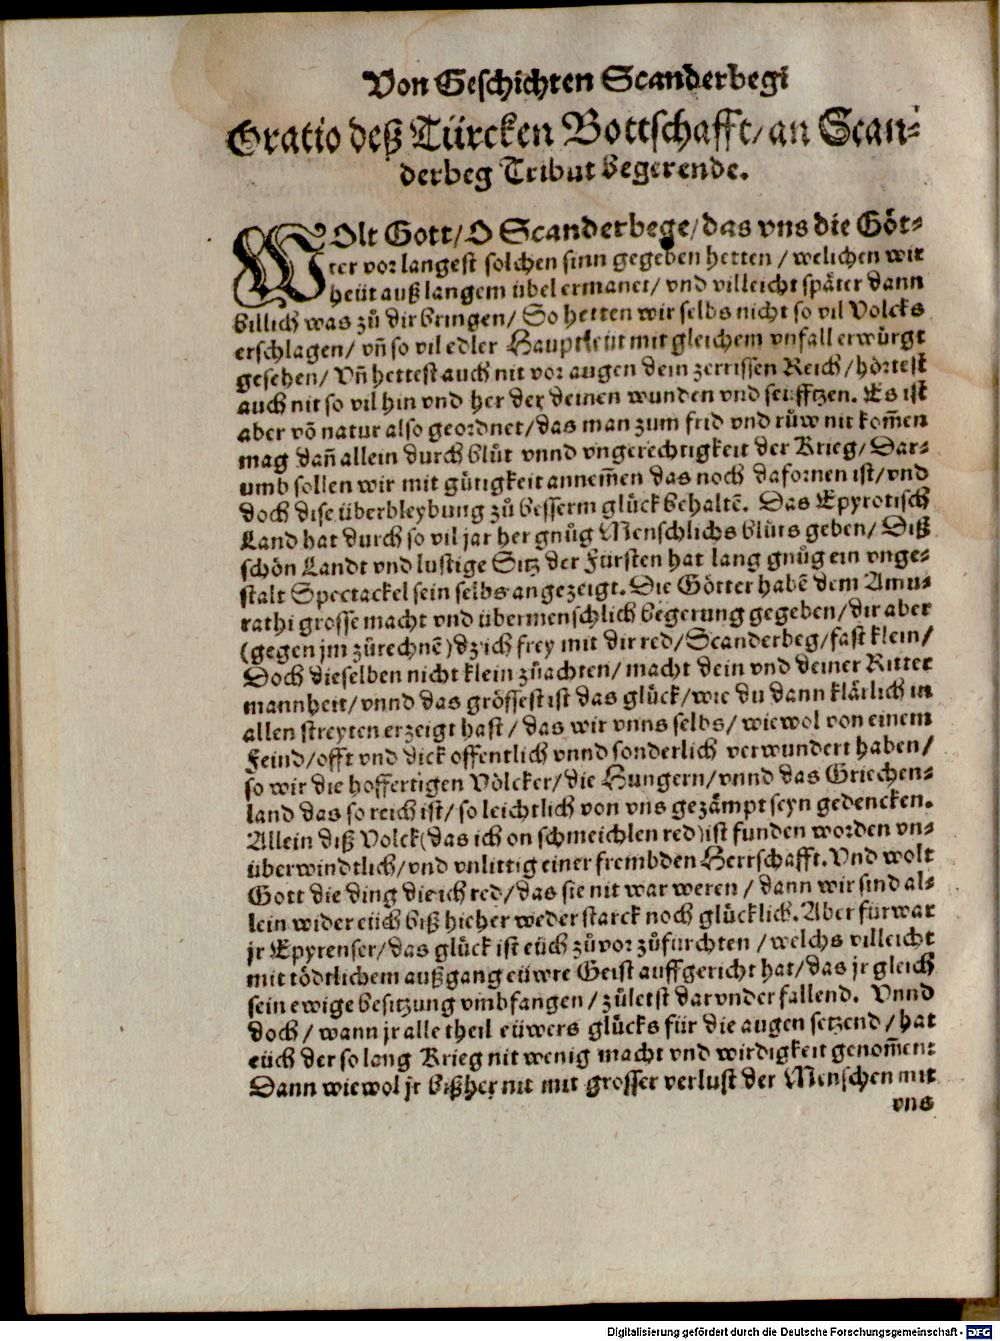 Von Geschichten Scanderbegi
Oratio deß Türcken Bottschafft/ an Scan-
derbeg Tribut begerende.
WOlt Gott/ O Scanderbege/ das vns die Göt-
ter vor langest solchen sinn gegeben hetten / welichen wir
heüt auß langem übel ermanet/ vnd villeicht später dann
billich was zů dir bringen/ So hetten wir selbs nicht so vil Volcks
erschlagen/ vñ so vil edler Hauptleüt mit gleichem vnfall erwürgt
gesehen/ Vñ hettest auch nit vor augen dein zerrissen Reich/ hörtest
auch nit so vil hin vnd her der deinen wunden vnd seüfftzen. Es ist
aber võ natur also geordnet/ das man zum frid vnd růw nit kom̃en
mag dañ allein durch blůt vnnd vngerechtigkeit der Krieg/ Dar-
umb sollen wir mit gütigkeit annem̃en das noch dafornen ist/ vnd
doch dise überbleybung zů besserm glück behaltẽ. Das Epyrotisch
Land hat durch so vil jar her gnůg Menschlichs blůts geben/ Diß
schön Landt vnd lustige Sitz der Fürsten hat lang gnůg ein vnge-
stalt Spectackel sein selbs angezeigt. Die Götter habẽ dem Amu-
rathi grosse macht vnd übermenschlich begerung gegeben/ dir aber
(gegen jm zůrechnẽ) dz ich frey mit dir red/ Scanderbeg/ fast klein/
Doch dieselben nicht klein zůachten/ macht dein vnd deiner Ritter
mannheit/ vnnd das grössest ist das glück/ wie du dann klärlich in
allen streyten erzeigt hast / das wir vnns selbs/ wiewol von einem
Feind/ offt vnd dick offentlich vnnd sonderlich verwundert haben/
so wir die hoffertigen Völcker/ die Hungern/ vnnd das Griechen-
land das so reich ist/ so leichtlich von vns gezämpt seyn gedencken.
Allein diß Volck (das ich on schmeichlen red) ist funden worden vn-
überwindtlich/ vnd vnlittig einer frembden Herrschafft. Vnd wolt
Gott die ding die ich red/ das sie nit war weren / dann wir sind al-
lein wider eüch biß hieher weder starck noch glücklich. Aber fürwar
jr Epyrenser/ das glück ist eüch zůvor zůfürchten / welchs villeicht
mit tödtlichem außgang eüwre Geist auffgericht hat/ das jr gleich
sein ewige besitzung vmbfangen / zůletst darvnder fallend. Vnnd
doch / wann jr alle theil eüwers glücks für die augen setzend / hat
eüch der so lang Krieg nit wenig macht vnd wirdigkeit genom̃en:
Dann wiewol jr bißher nit mit grosser verlust der Menschen mit
vns
Digitalisierung gefördert durch die Deutsche Forschungsgemeinschaft - DFG